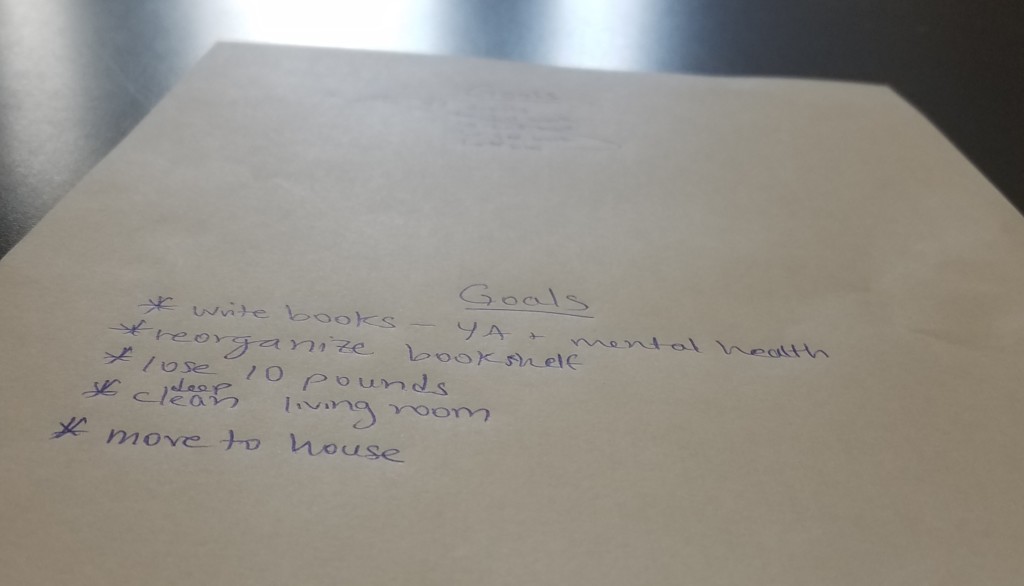 Goals
* write books - YA + mental health
* reorganize bookshelf
* lose 10 pounds
* deep clean living room
* move to house